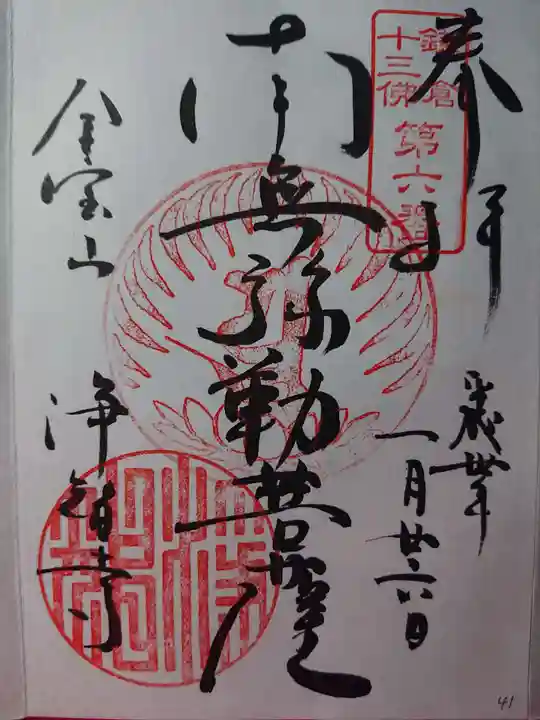 奉拝
平成廿年
一月廿六日
鎌倉
十三佛
第六番
南無弥勒菩薩
金宝山
浄智寺
41